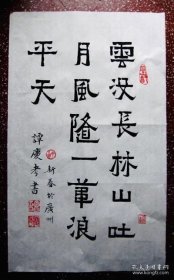 雲没長林山吐
月風隨一葦浪
平天
新春於廣州
譚慶孝書